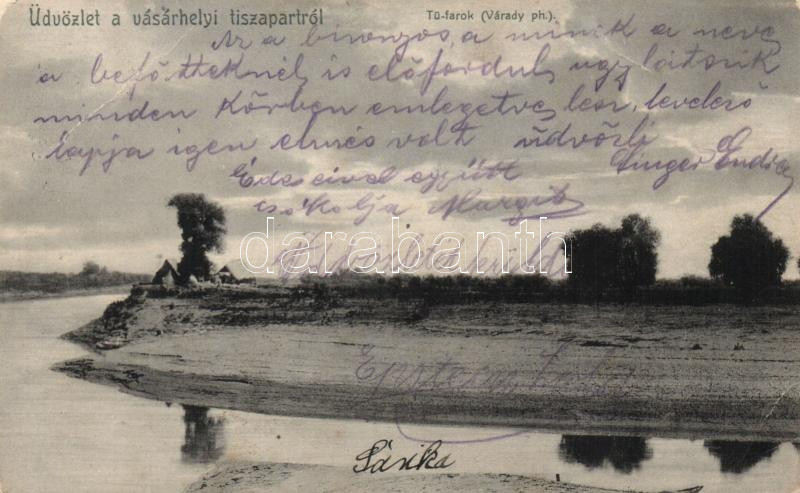 Üdvözlet a vásárhelyi tiszapartról
Tü-farok (Várady ph.).
Az a bizonyos, a minek a neve
a befőtteknél is előfordul, ugy látszik
minden körben emlegetve lesz, levelező
lapja igen elmés volt üdvözli
Singer Endre
Édeseivel együtt
csókolja Margit
darabanth.com
Üdvözletet küld
Sárika